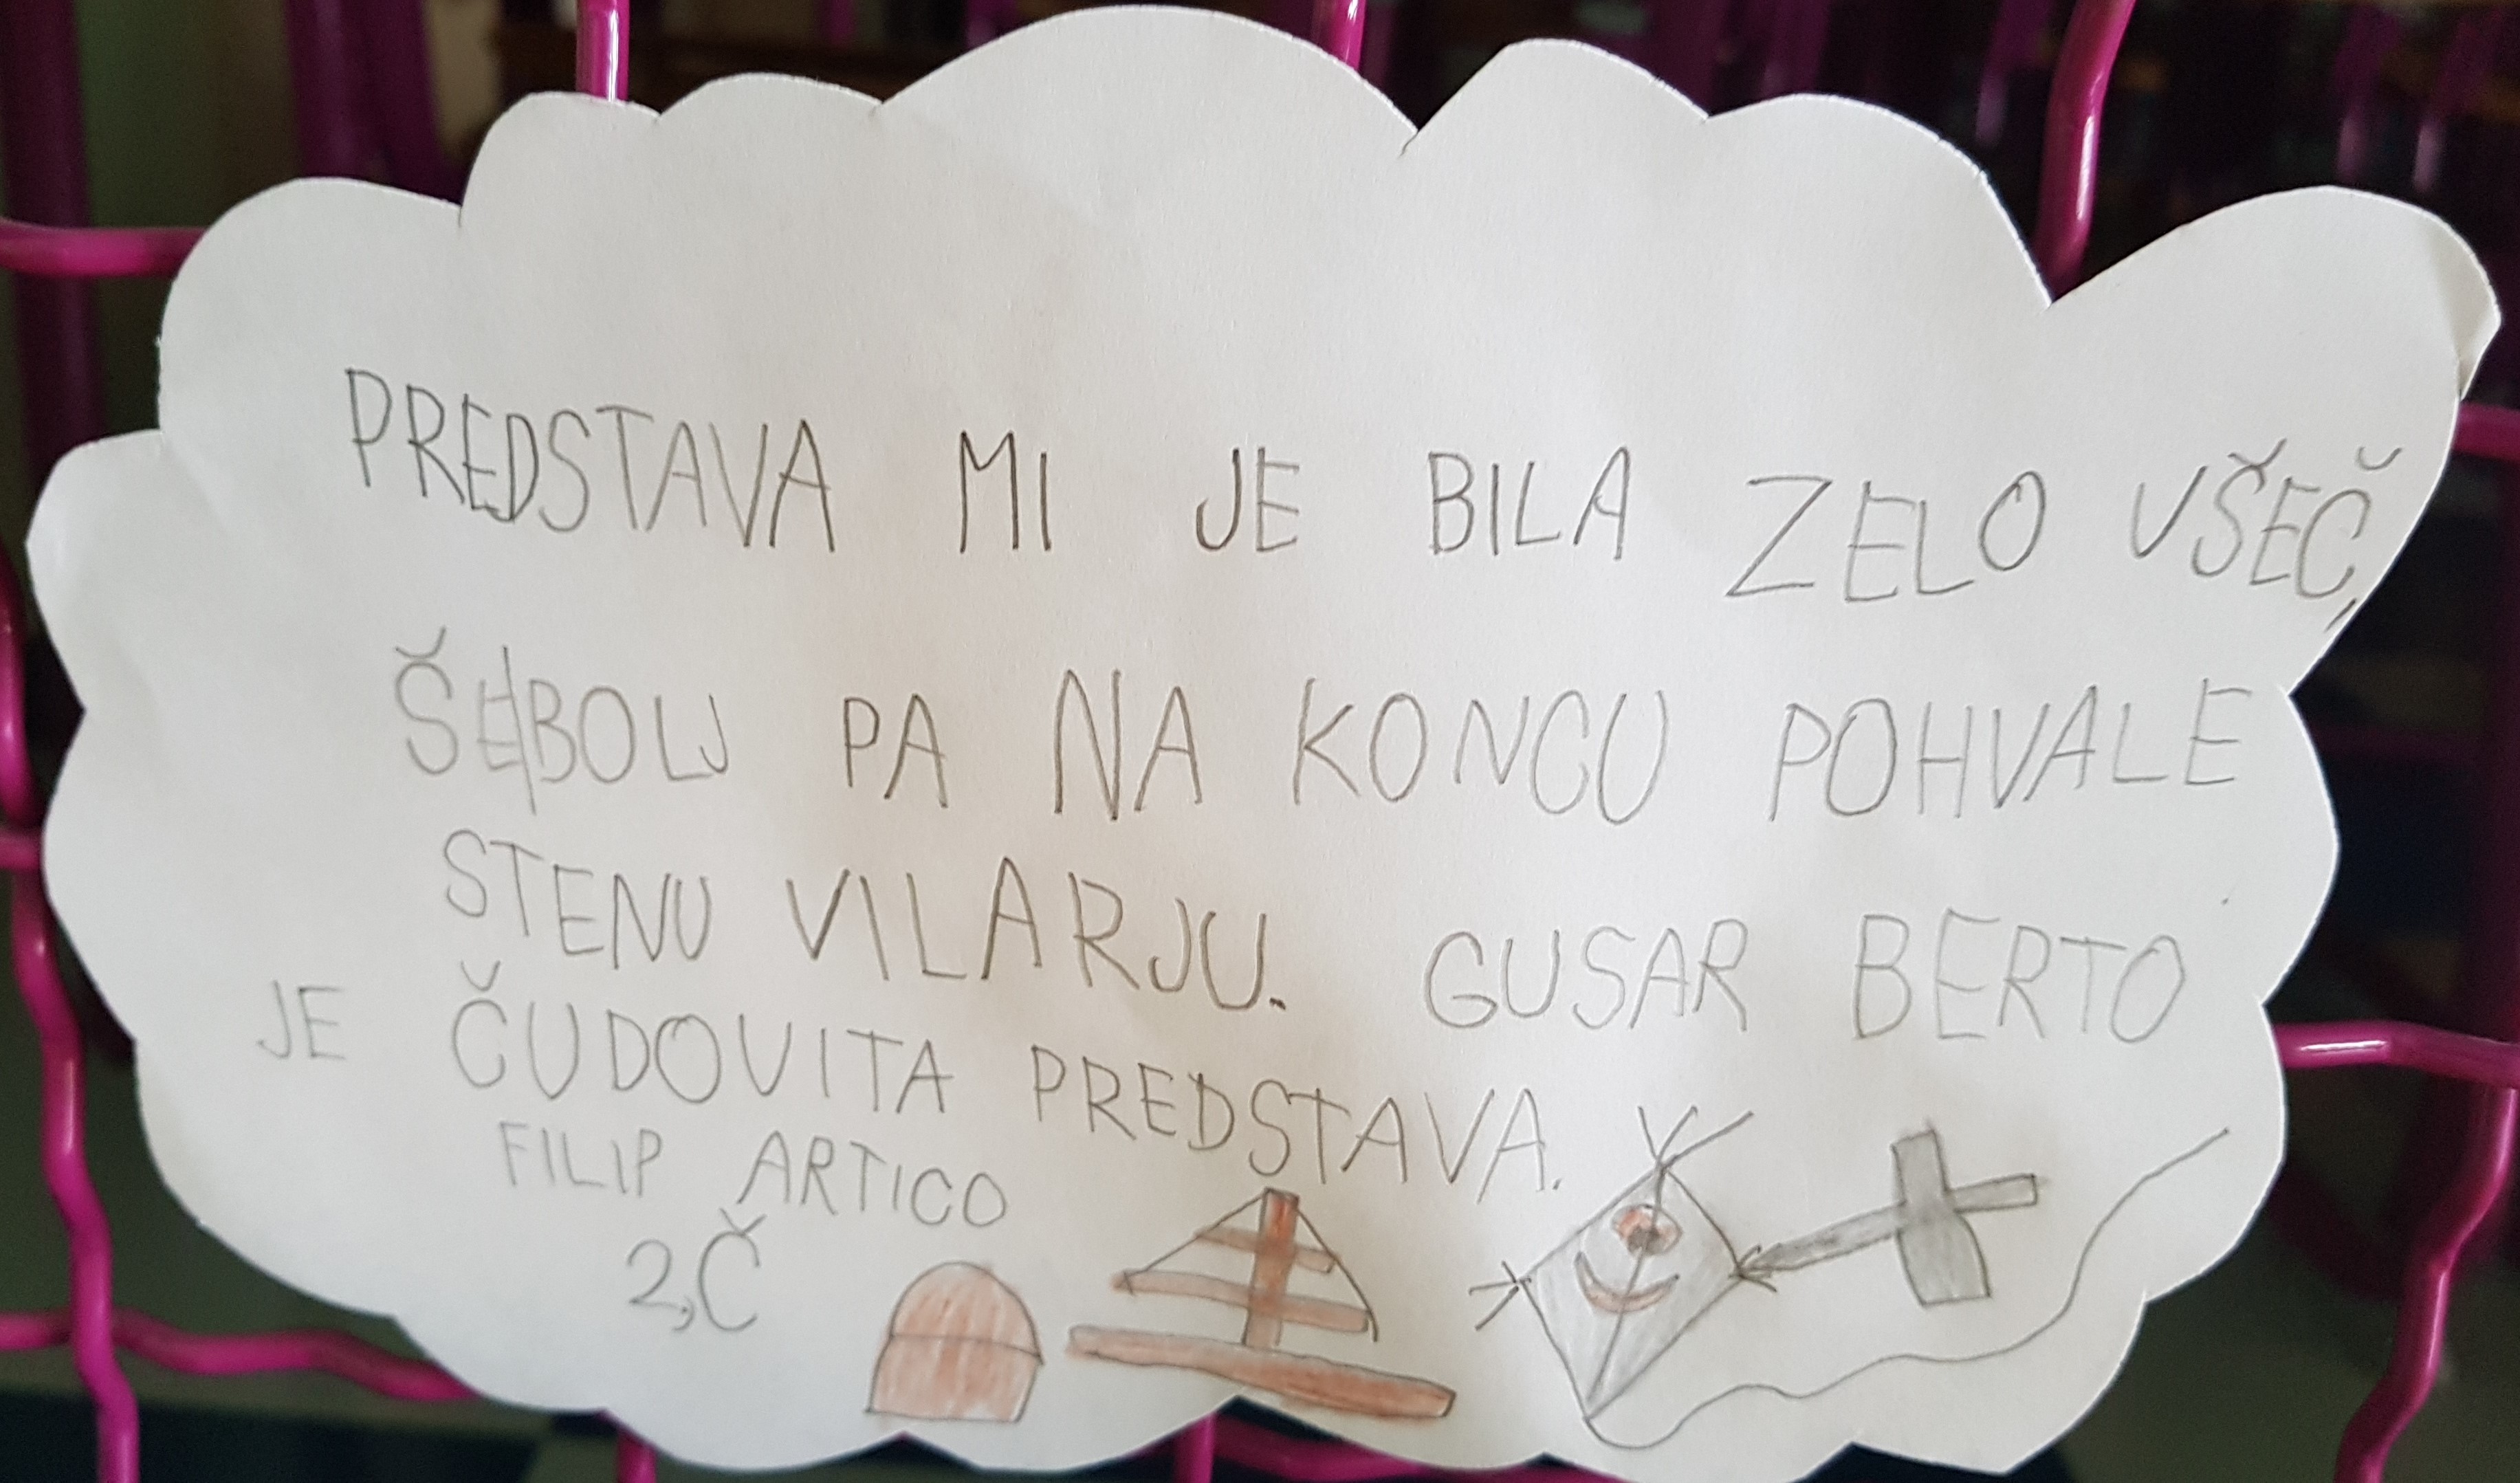 PREDSTAVA MI JE BILA ZELO VŠEČ,
ŠE|BOLJ PA NA KONCU POHVALE
STENU VILARJU. GUSAR BERTO
JE ČUDOVITA PREDSTAVA.
FILIP ARTICO
2,Č